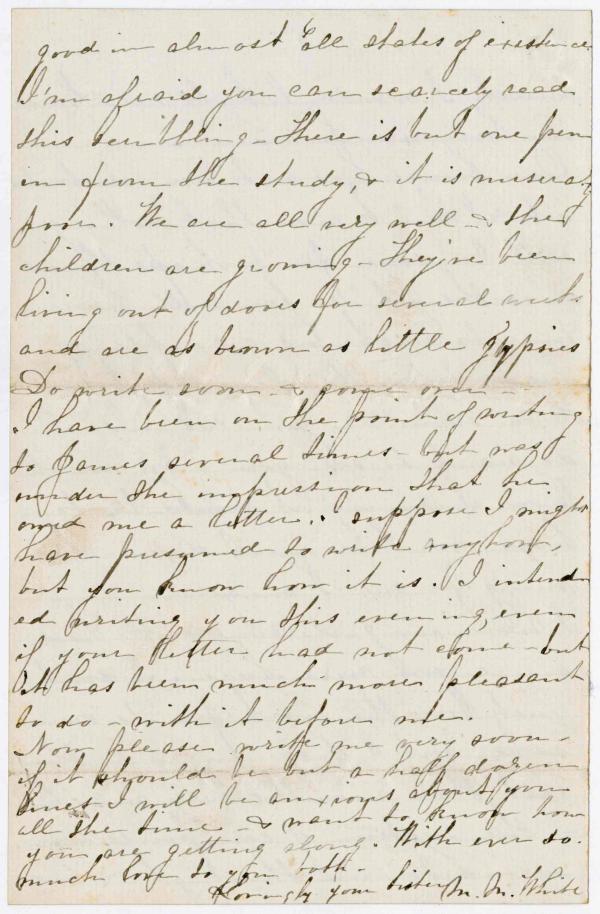 good in almost all states of existence.
I'm afraid you can scarcely read
this scribbling - There is but one pen
in from the study, & it is miserably
poor. We are all very well - & the
children are growing - They've been
living out of doors for several weeks
and are as brown as little gypsies
Do write soon - & come over -
I have been on the point of writing
to James several times - but was
under the impression that he
owed me a letter. I suppose I might
have presumed to write anyhow,
but you know how it is. I intend
ed writing you this evening, even
if your letter had not come - but
it has been much more pleasant
to do - with it before me.
Now please write me very soon -
if it should be but a half dozen
lines I will be anxious about you
all the time - & want to know how
you are getting along. With ever so
much love to you both -
Lovingly your sister M. M. White